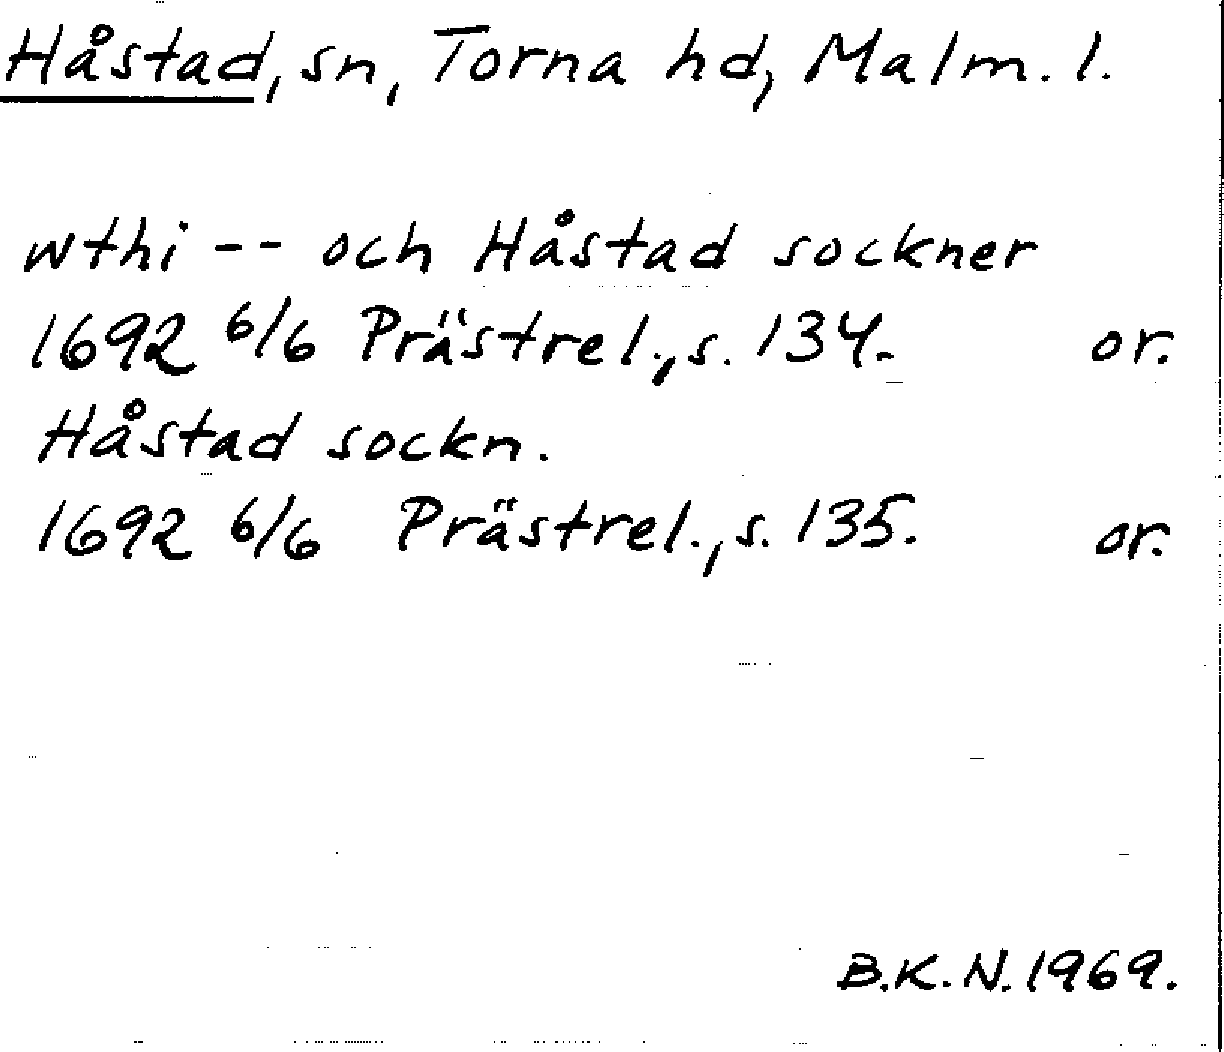 Håstad, sn, Torna hd, Malm. l.
wthi -- och Håstad sockner
1692 6/6 Prästrel., s. 134. or.
Håstad sockn.
1692 6/6 Prästrel., s. 135. or.
B.K.N. 1969.